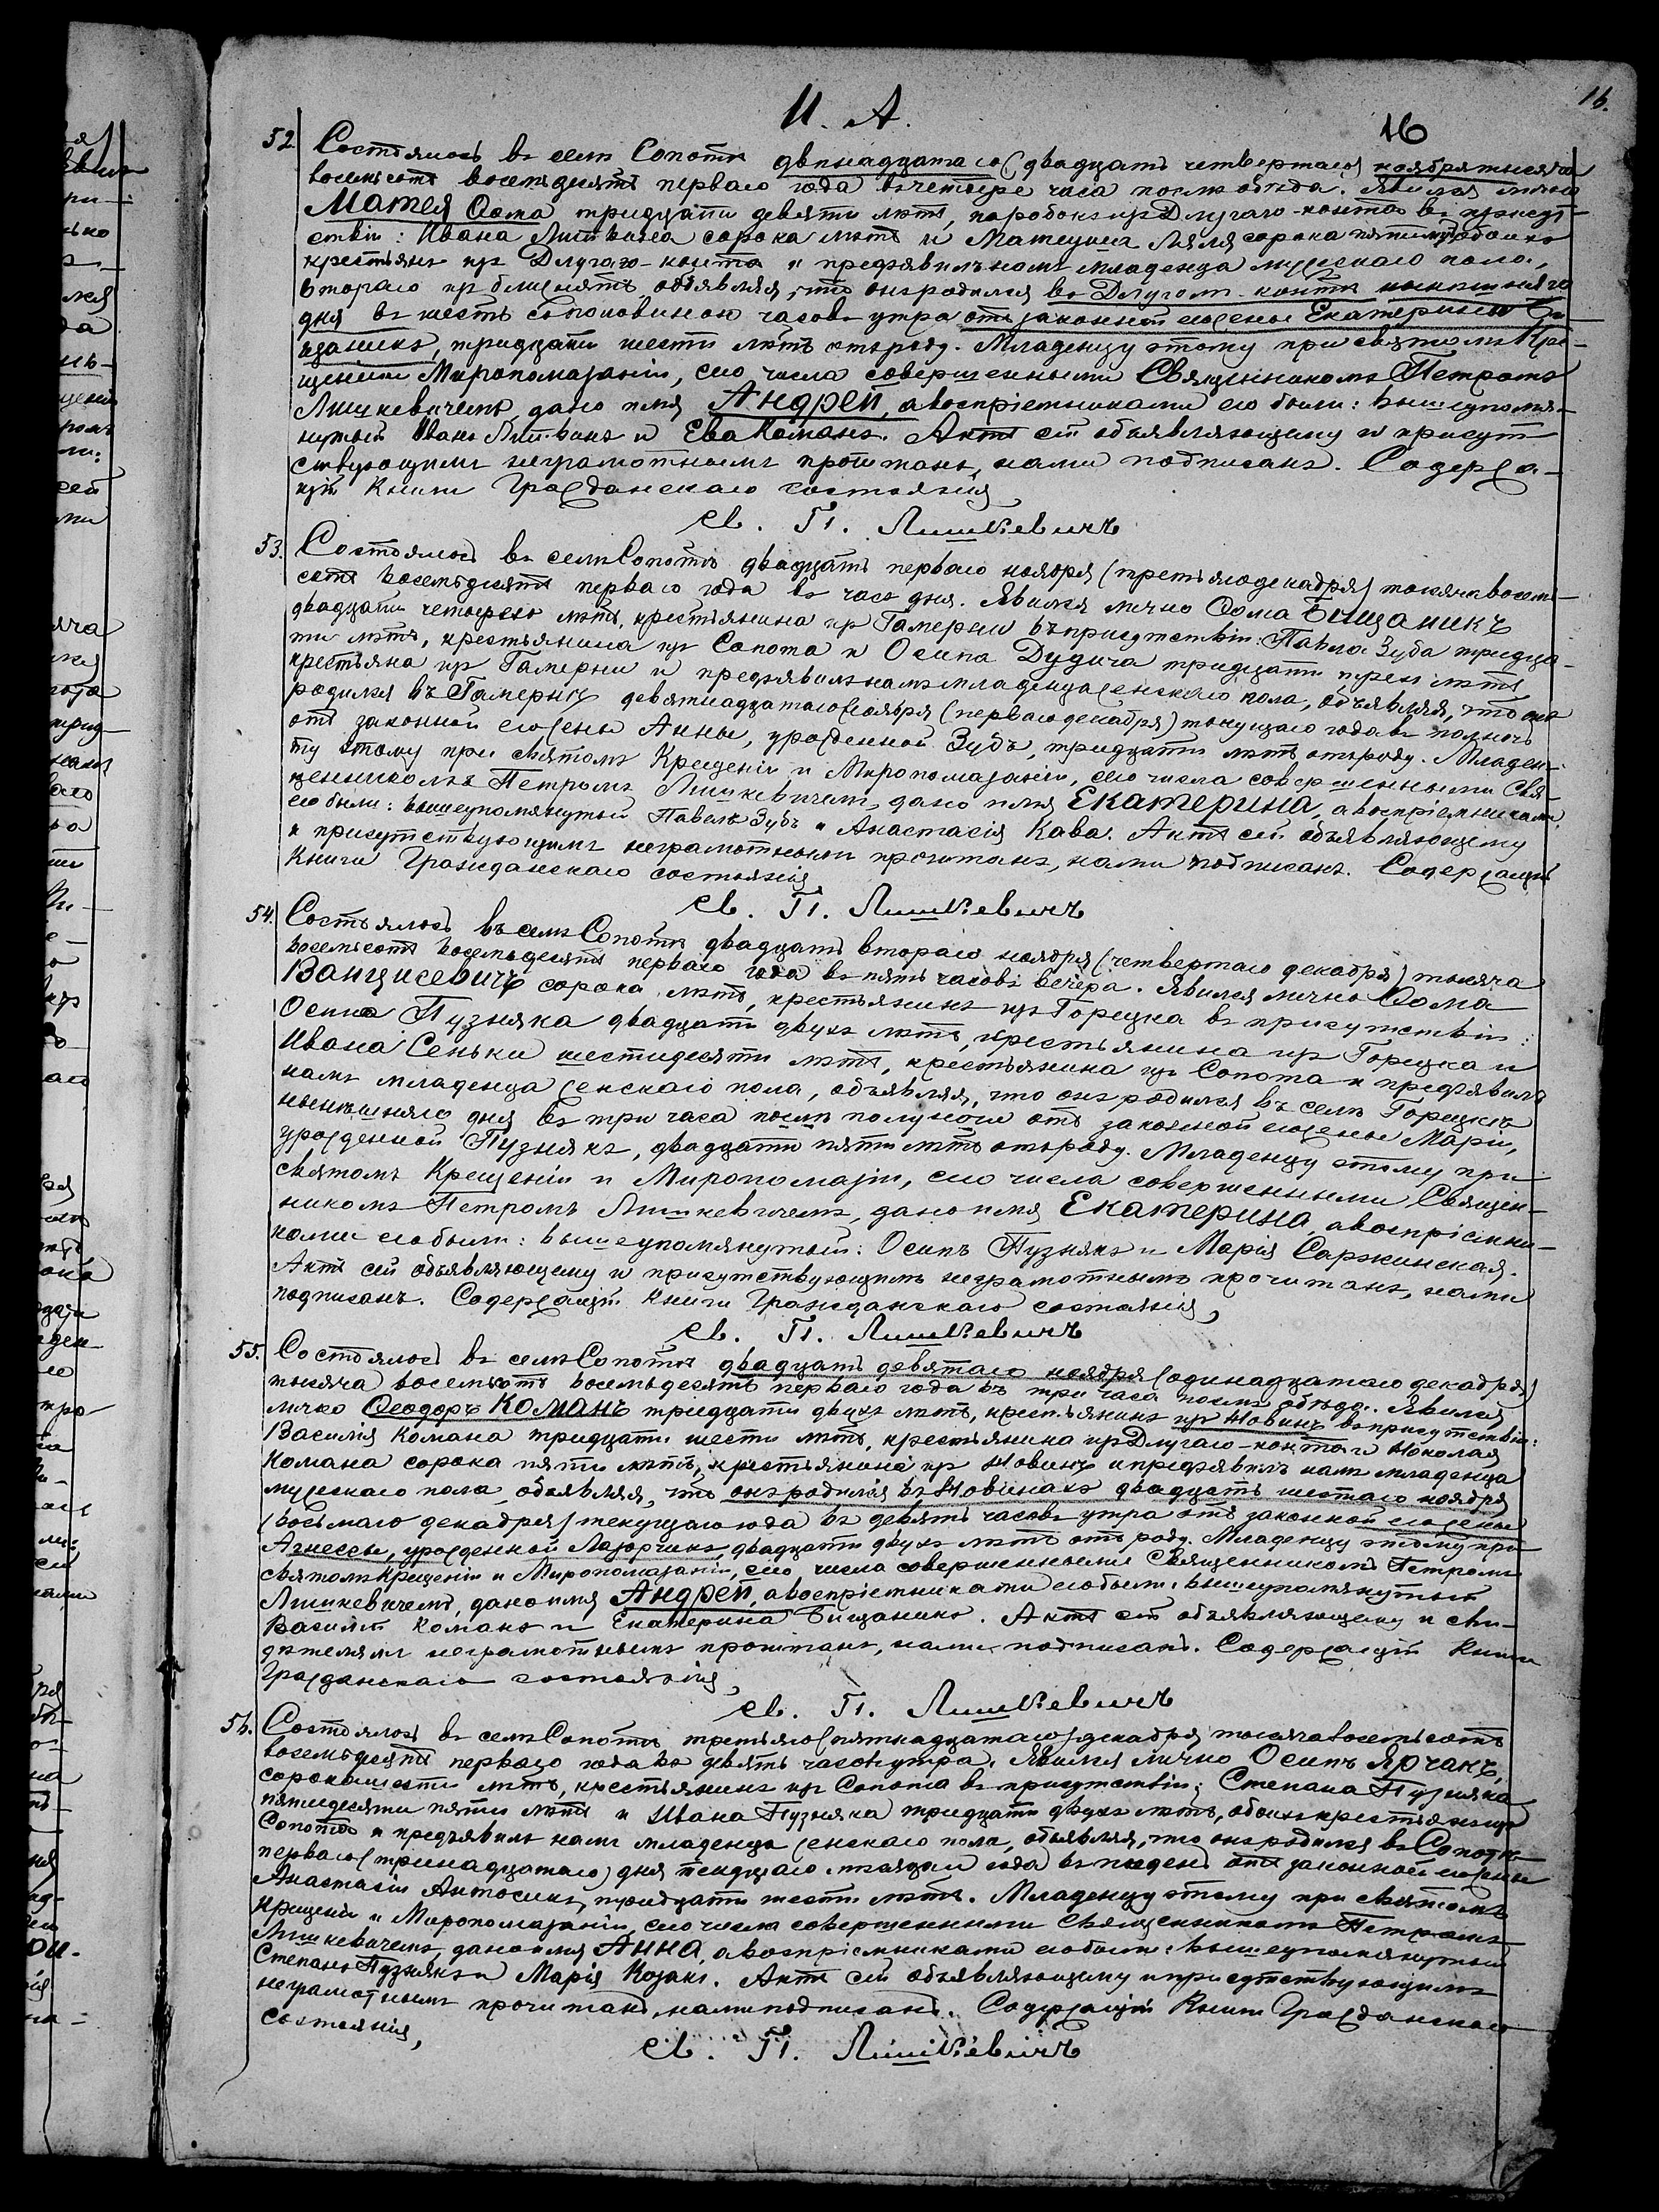 И. А.
16
16.
52. Состоялось въ селѣ Сопотѣ двѣнадцатаго (двадцать четвертаго) ноября тысяча
восемьсотъ восемьдесятъ перваго года въ четыре часа послѣ обѣда. Явился лично
Матей Ѳома тридцати девяти лѣтъ, паробокъ изъ Длугаго-конта въ присут-
ствіи: Ивана Литвина сорока лѣтъ и Матеуша Ляля сорока пяти лѣтъ обоихъ
крестьянъ изъ Длугаго-конта и предъявилъ намъ младенца мужескаго пола,
втораго изъ близнятъ, объявляя, что онъ родился въ Длугомъ-контѣ нынѣшняго
дня въ шесть съ половиною часовъ утра отъ законной его жены Екатерины Би-
щаникъ, тридцати шести лѣтъ отъ роду. Младенцу этому при святомъ Кре-
щеніи и Миропомазаніи, сего числа совершенными Священникомъ Петромъ
Лишкевичемъ, дано имя Андрей, а воспріемниками его были: вышеупомя-
нутый Иванъ Литвинъ и Ева Команъ. Актъ сей объявляющему и присут-
ствующимъ неграмотнымъ прочитанъ, нами подписанъ. Содержа-
щій Книги Гражданскаго состоянія,
Св. П. Лишкевичъ
53. Состоялось въ селѣ Сопотѣ двадцать перваго ноября (третьяго декабря) тысяча восемь-
сотъ восемьдесятъ перваго года въ часъ дня. Явился лично Ѳома Бищаникъ
двадцати четырехъ лѣтъ, крестьянинъ изъ Гамерни въ присутствіи: Павла Зуба тридца-
ти лѣтъ, крестьянина изъ Сопота и Осипа Дудича тридцати трехъ лѣтъ,
крестьяна изъ Гамерни и предъявилъ намъ младенца женскаго пола, объявляя, что она
родился въ Гамерни девятнадцатаго ноября (перваго декабря) текущаго года въ полночь
отъ законной его жены Анны, урожденной Зубъ, тридцати лѣтъ отъ роду. Младен-
цу этому при святомъ Крещеніи и Миропомазаніи, сего числа совершенными Свя-
щенникомъ Петромъ Лишкевичемъ, дано имя Екатерина, а воспріемниками
его были: вышеупомянутый Павелъ Зубъ и Анастасія Кава. Актъ сей объявляющему
и присутствующимъ неграмотнымъ прочитанъ, нами подписанъ. Содержащій
Книги Гражданскаго состоянія,
Св. П. Лишкевичъ
54. Состоялось въ селѣ Сопотѣ двадцать втораго ноября (четвертаго декабря) тысяча
восемьсотъ восемьдесятъ перваго года въ пять часовъ вечера. Явился лично Ѳома
Ванцисевичъ сорока лѣтъ, крестьянинъ изъ Горецка въ присутствіи:
Осипа Пузняка двадцати двухъ лѣтъ, крестьянина изъ Горецка и
Ивана Сеньки шестидесяти лѣтъ, крестьянина изъ Сопота и предъявилъ
намъ младенца женскаго пола, объявляя, что онъ родился въ селѣ Горецкѣ
нынѣшняго дня въ три часа послѣ полуночи отъ законной его жены Маріи,
урожденной Пузнякъ, двадцати пяти лѣтъ отъ роду. Младенцу этому при
святомъ Крещеніи и Миропомазіи, сего числа совершенными Священ-
никомъ Петромъ Лишкевичемъ, дано имя Екатерина, а воспріемни-
ками его были: вышеупомянутый: Осипъ Пузнякъ и Марія Саржинская.
Актъ сей объявляющему и присутствующимъ неграмотнымъ прочитанъ, нами
подписанъ. Содержащій Книги Гражданскаго состоянія,
Св. П. Лишкевичъ
55. Состоялось въ селѣ Сопотѣ двадцать девятаго ноября (одинадцатаго декабря)
тысяча восемьсотъ восемьдесятъ перваго года въ три часа послѣ обѣда. Явился
лично Ѳеодоръ Команъ тридцати двухъ лѣтъ, крестьянинъ изъ Новинъ въ присутствіи:
Василія Комана тридцати шести лѣтъ, крестьянина изъ Длугаго-конта и Николая
Комана сорока пяти лѣтъ, крестьянина изъ Новинъ и предъявилъ намъ младенца
мужескаго пола, объявляя, что онъ родился въ Новинахъ двадцать шестаго ноября
(восьмаго декабря) текущаго года въ девять часовъ утра отъ законной его жены
Агнессы, урожденной Лазорчикъ, двадцати двухъ лѣтъ отъ роду. Младенцу этому при
святомъ Крещеніи и Миропомазаніи, сего числа совершенными Священникомъ Петромъ
Лишкевичемъ, дано имя Андрей, а воспріемниками его были: вышеупомянутый
Василій Команъ и Екатерина Бищаникъ. Актъ сей объявляющему и сви-
дѣтелямъ неграмотнымъ прочитанъ, нами подписанъ. Содержащій Книги
Гражданскаго состоянія,
Св. П. Лишкевичъ
56. Состоялось въ селѣ Сопотѣ третьяго (пятнадцатаго) декабря тысяча восемьсотъ
восемьдесятъ перваго года въ девять часовъ утра. Явился лично Осипъ Ярчакъ,
сорока шести лѣтъ, крестьянинъ изъ Сопота въ присутствіи: Степана Пузняка
пятидесяти пяти лѣтъ и Ивана Пузняка тридцати двухъ лѣтъ, обоихъ крестьянъ изъ
Сопота и предъявилъ намъ младенца женскаго пола, объявляя, что онъ родился въ Сопотѣ
перваго (тринадцатаго) дня текущаго мѣсяца и года въ полдень отъ законной его жены
Анастасіи Антосикъ, тридцати шести лѣтъ. Младенцу этому при святомъ
Крещеніи и Миропомазаніи, сего числа совершенными Священникомъ Петромъ
Лишкевичемъ, дано имя Анна, а воспріемниками его были: вышеупомянутый
Степанъ Пузнякъ и Марія Козакъ. Актъ сей объявляющему и присутствующимъ
неграмотнымъ прочитанъ, нами подписанъ. Содержащій Книги Гражданскаго
состоянія,
Св. П. Лишкевичъ